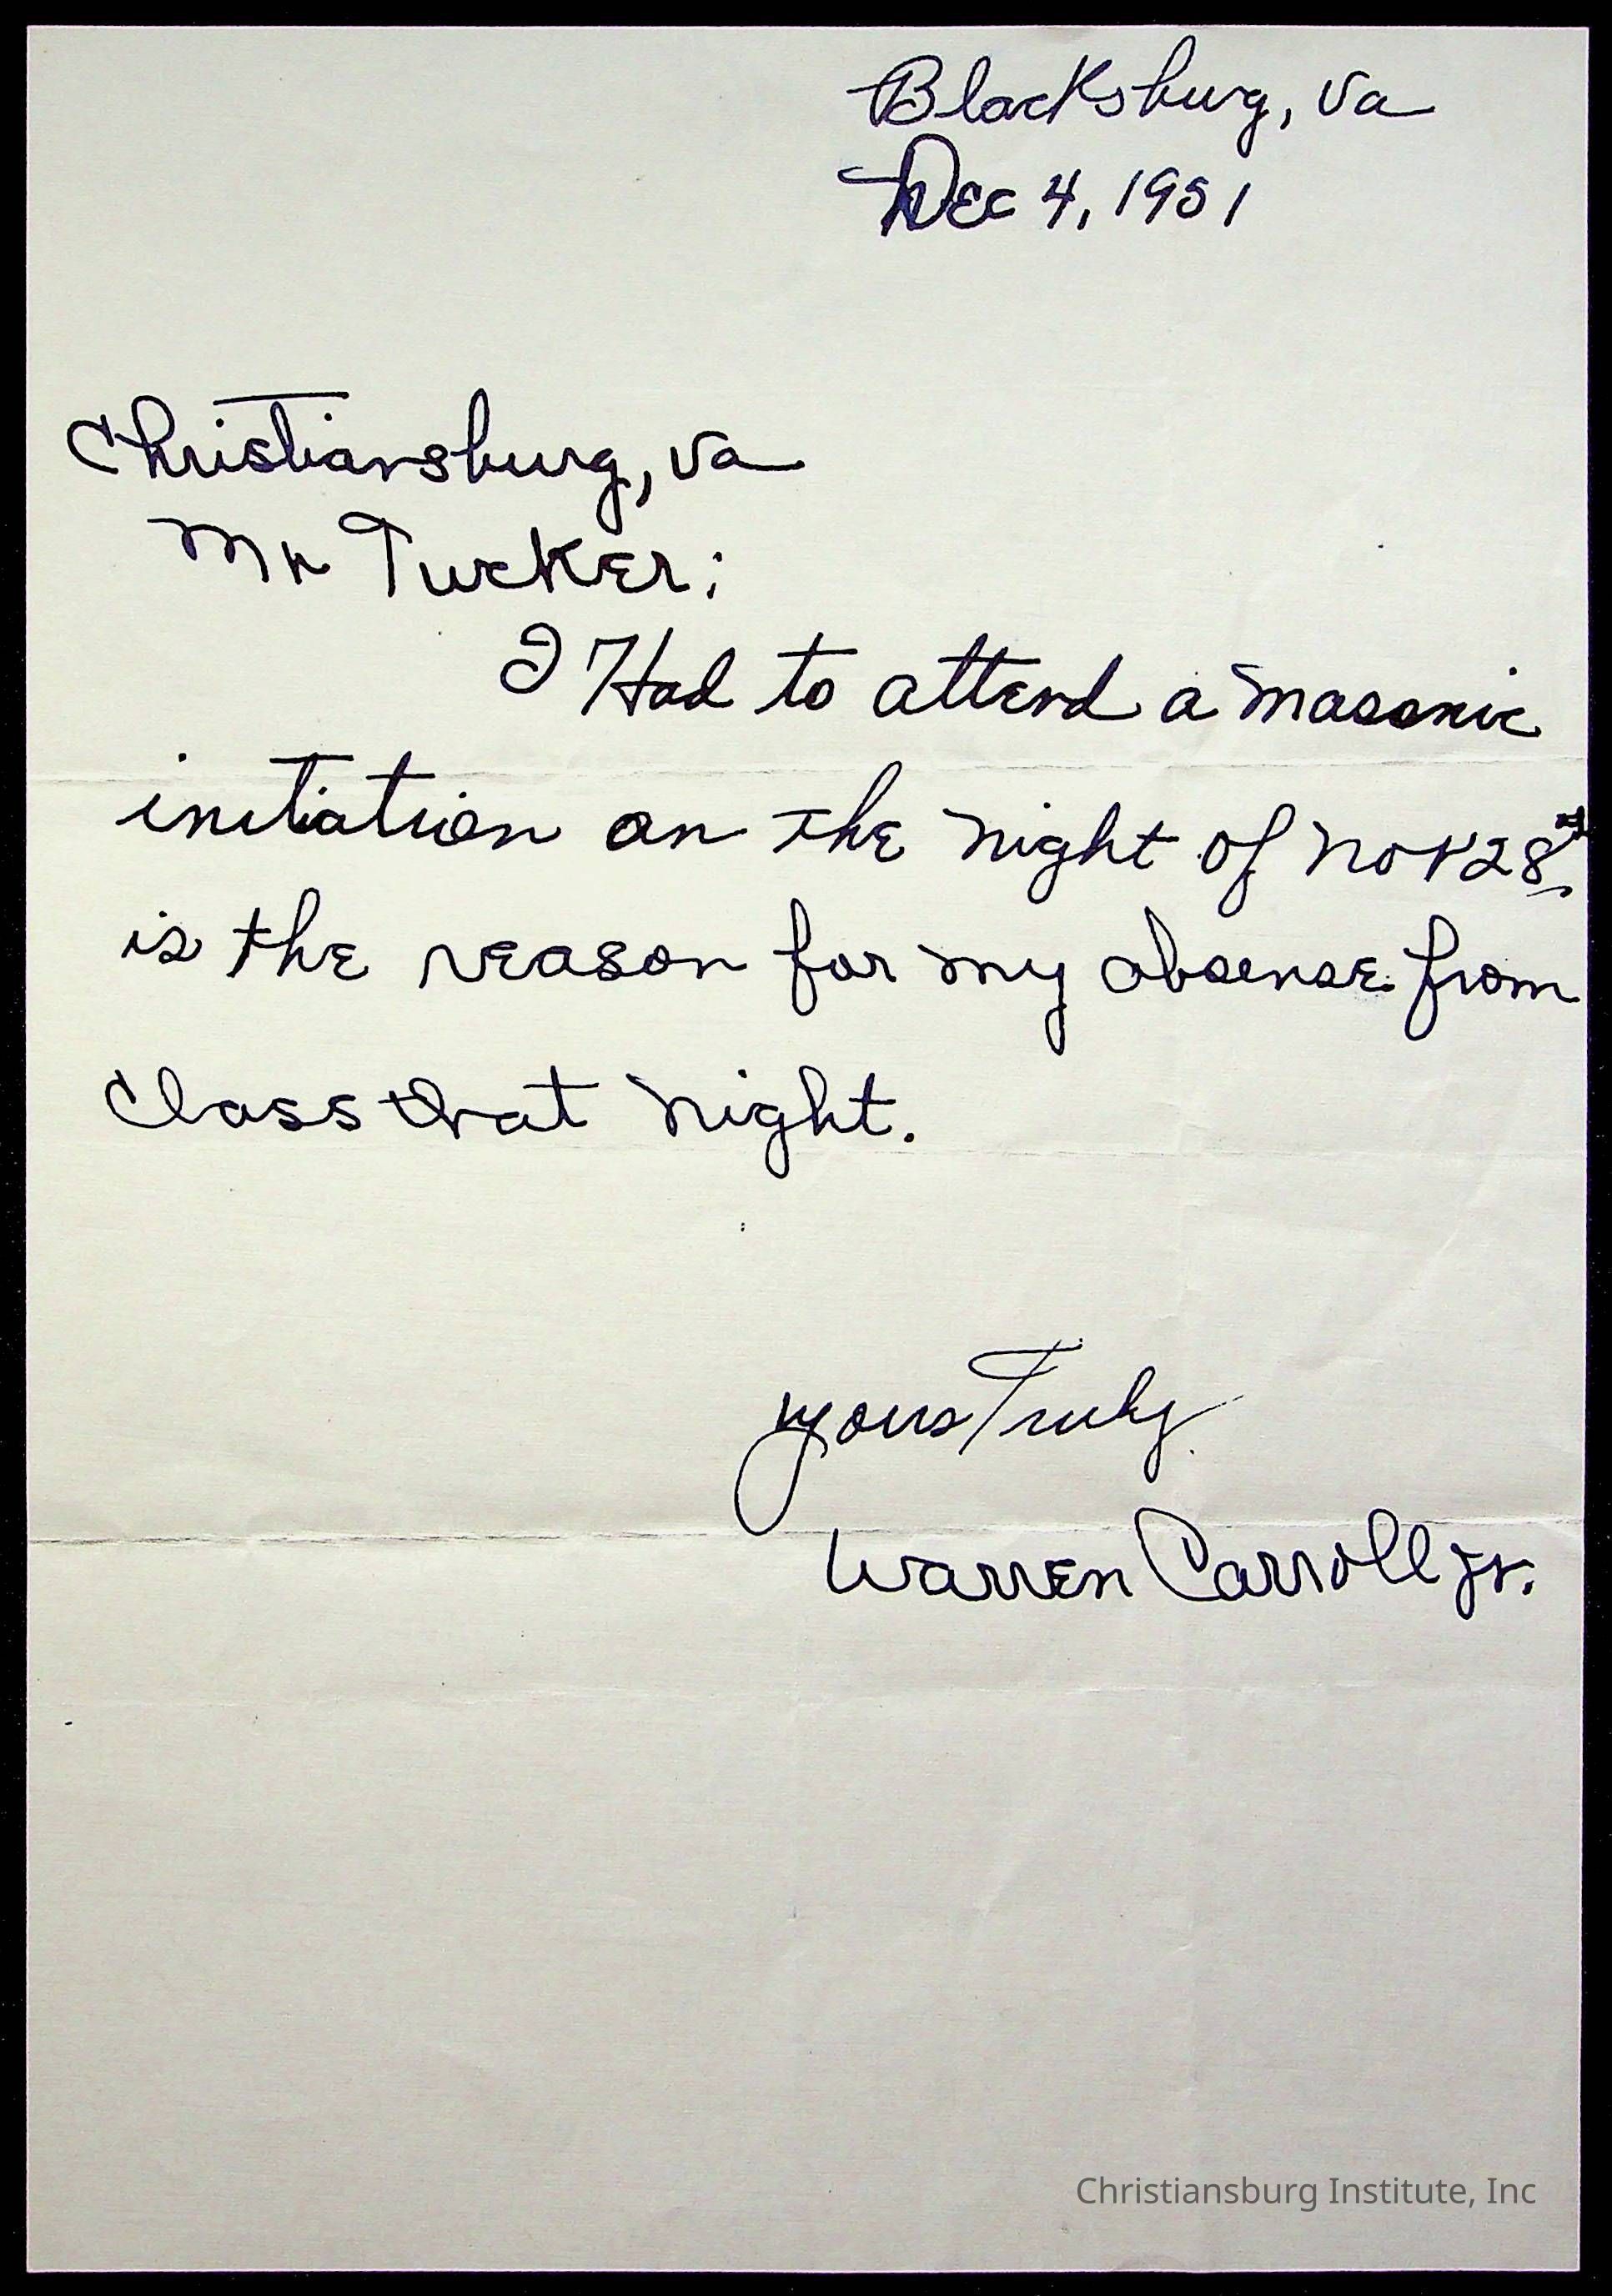 Blacksburg, Va
Dec 4, 1951
Christiansburg, Va
Mr Tucker;
I Had to attend a Masonic
initiation on the Night of Nov 28th,
is the reason for my absense from
Class that Night.
yours Truly
Warren Carroll jr.
Christiansburg Institute, Inc